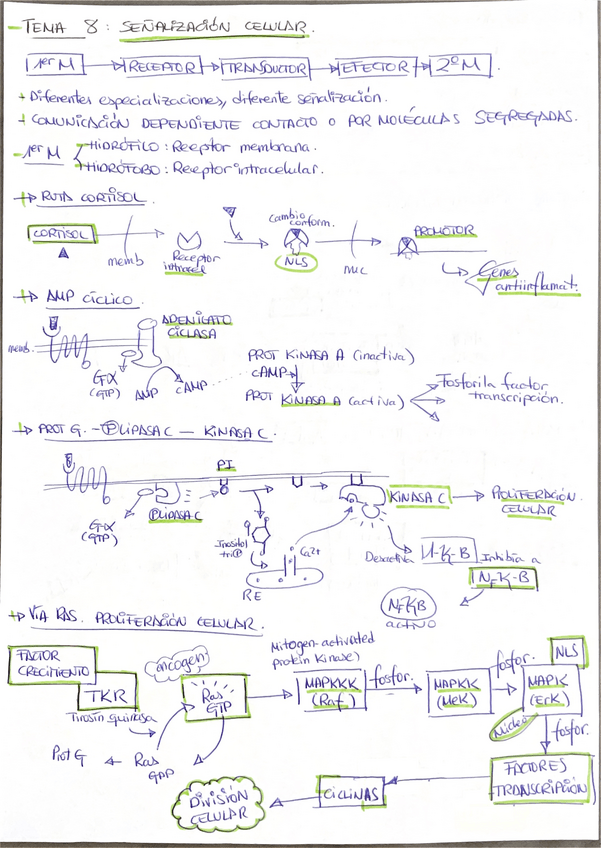 - TEMA 8: SEÑALIZACIÓN CELULAR.
1er M → RECEPTOR → TRANSDUCTOR → EFECTOR → 2º M.
+ Diferentes especializaciones, diferente señalización.
+ COMUNICACIÓN DEPENDIENTE CONTACTO O POR MOLÉCULAS SEGREGADAS.
- 1er M
HIDRÓFILO: Receptor membrana.
HIDRÓFOBO: Receptor intracelular.
→ RUTA CORTISOL
CORTISOL
memb
Receptor
intracel
Cambio
conform.
NLS
nuc
PROMOTOR
Genes
antiinflamat.
→ AMP CÍCLICO.
memb.
ADENILATO
CICLASA
Gα
(GTP)
AMP
cAMP
PROT KINASA A (inactiva)
cAMP
PROT KINASA A (activa)
Fosforila factor
transcripción.
→ PROT G. - PLIPASA C - KINASA C.
PI
PLIPASA C
Gα
(GTP)
Inositol
tri P
Ca2+
RE
KINASA C → PROLIFERACIÓN
CELULAR
Desactiva
I-K-B
Inhibía a
NFK-B
NFKB
activo
→ VÍA RAS. PROLIFERACIÓN CELULAR.
FACTOR
CRECIMIENTO
TKR
Tirosin quinasa
oncogen
Ras
GTP
Prot G ← Ras
GAP
Mitogen-activated
protein Kinase)
MAPKKK
(Raf)
fosfor.
MAPKK
(MeK)
fosfor.
NLS
MAPK
(ErK)
Núcleo
fosfor.
FACTORES
TRANSCRIPCIÓN
CICLINAS
DIVISIÓN
CELULAR